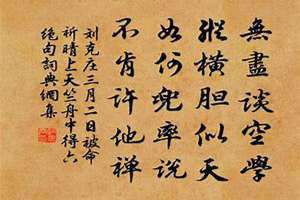 無盡談空學
縱橫胆似天
如何兜率說
不肯許他禅
刘克庄三月二日被命
祈晴上天竺舟中得六
绝句詞典網集